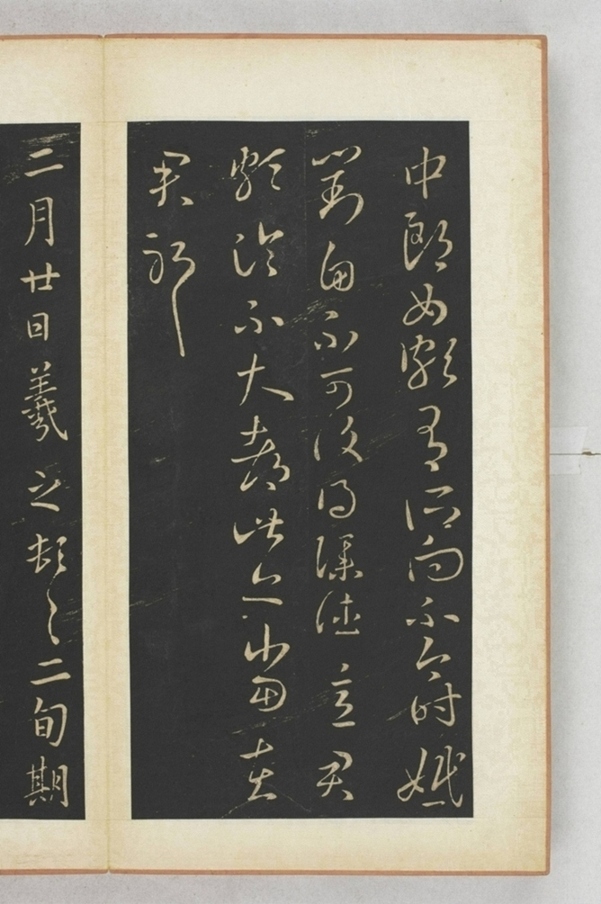 中郎女頗有所向不今時婚
對自不可復得僕往意君
頗論不大都此亦當在
君耶
二月廿日羲之頓首二旬期